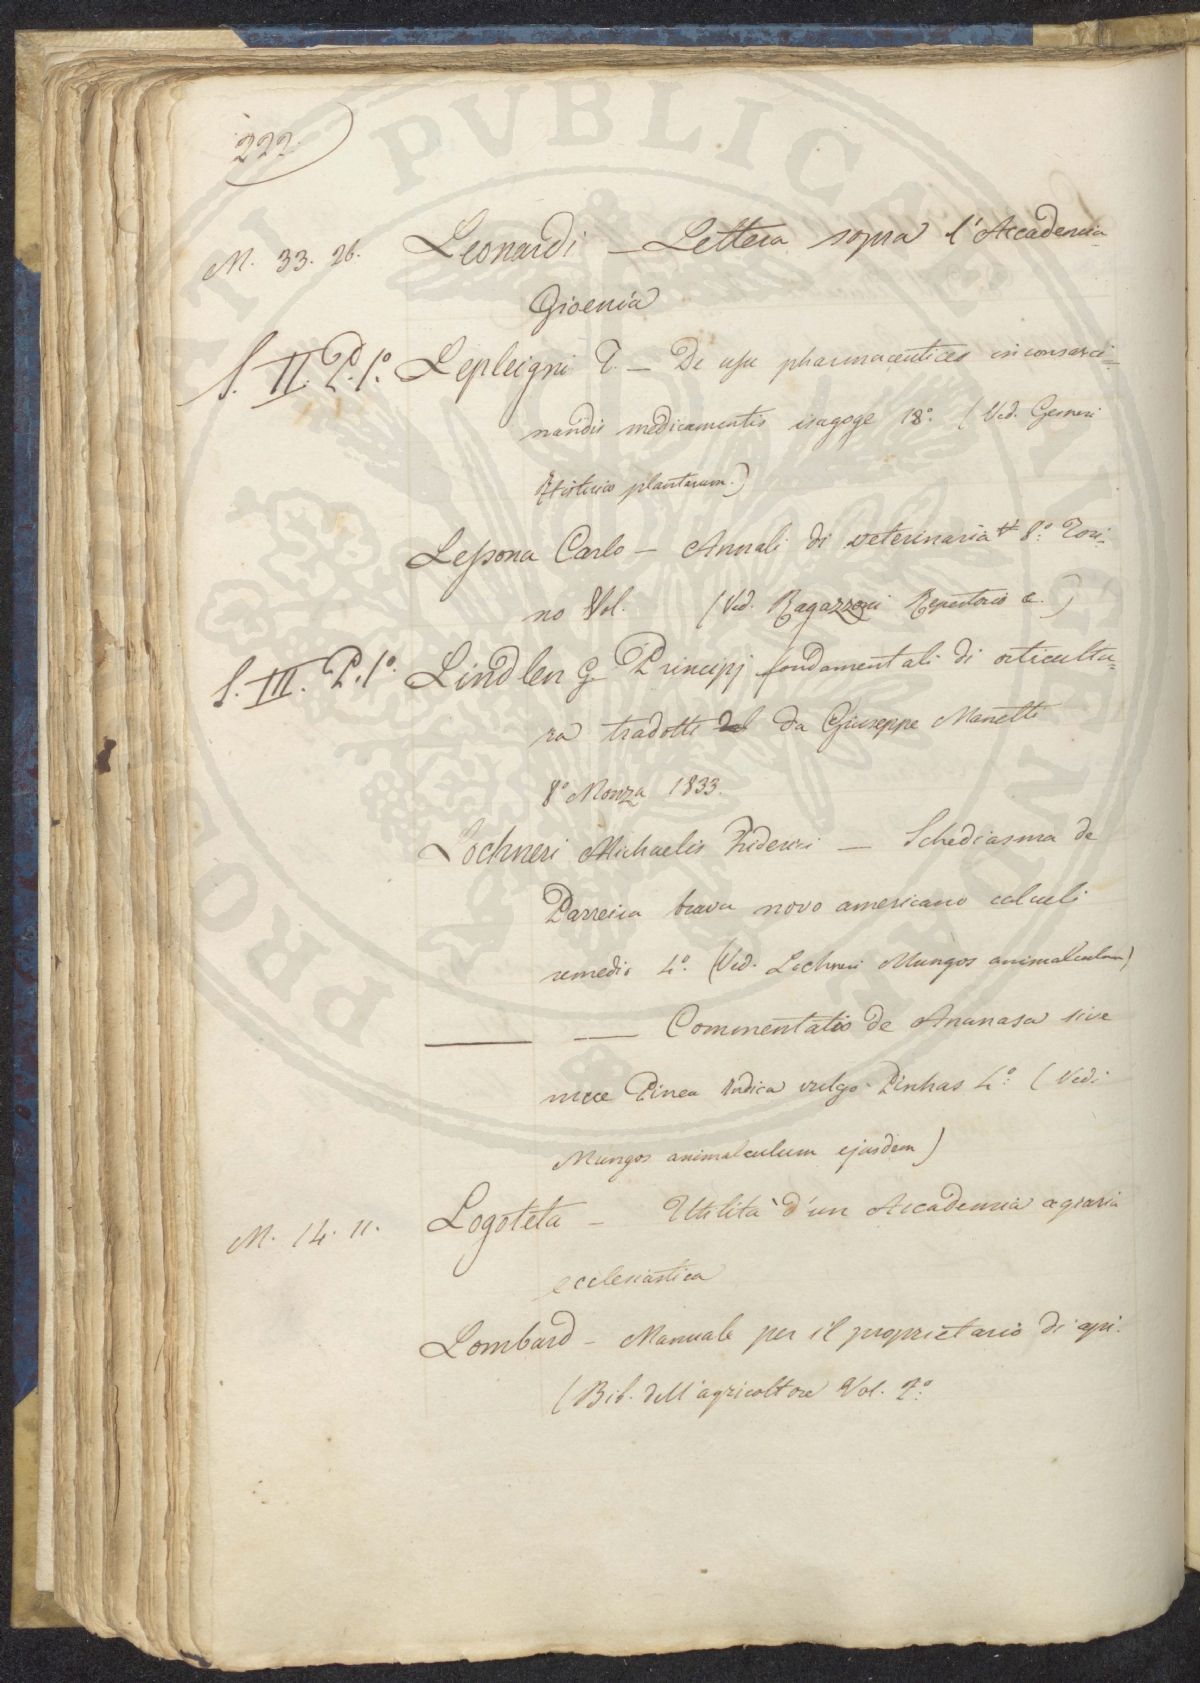 222.
M. 33. 26. Leonardi — Lettera sopra l'Accademia
Gioenia
S. II. P. 1.º Lepleigni T. — De usu pharmaceutices in consarci=
nandis medicamentis isagoge 18.º (Ved. Gesneri
Historia plantarum.)
Lessona Carlo — Annali di veterinaria 8.º Tori-
no Vol. (Ved. Ragazzoni Repertorio &.)
S. III. P. 1.º Lindlen G. Principj fondamentali di orticultu=
ra tradotti da Giuseppe Manetti
8.º Monza 1833.
Lochneri Michaelis Friderici — Schediasma de
Parreira brava novo americano calculi
remedio 4.º (Ved. Lochneri Mungos animalculum)
—— — Commentatio de Ananasa sive
nuce Pinea Indica vulgo Pinhas 4.º (Vedi
Mungos animalculum ejusdem)
M. 14. 11. Logoteta — Utilità d'un Accademia agraria
ecclesiastica
Lombard — Manuale per il proprietario di api.
(Bib. dell'agricoltore Vol. 7.º
PROSPERITATI PVBLICAE AVGENDAE